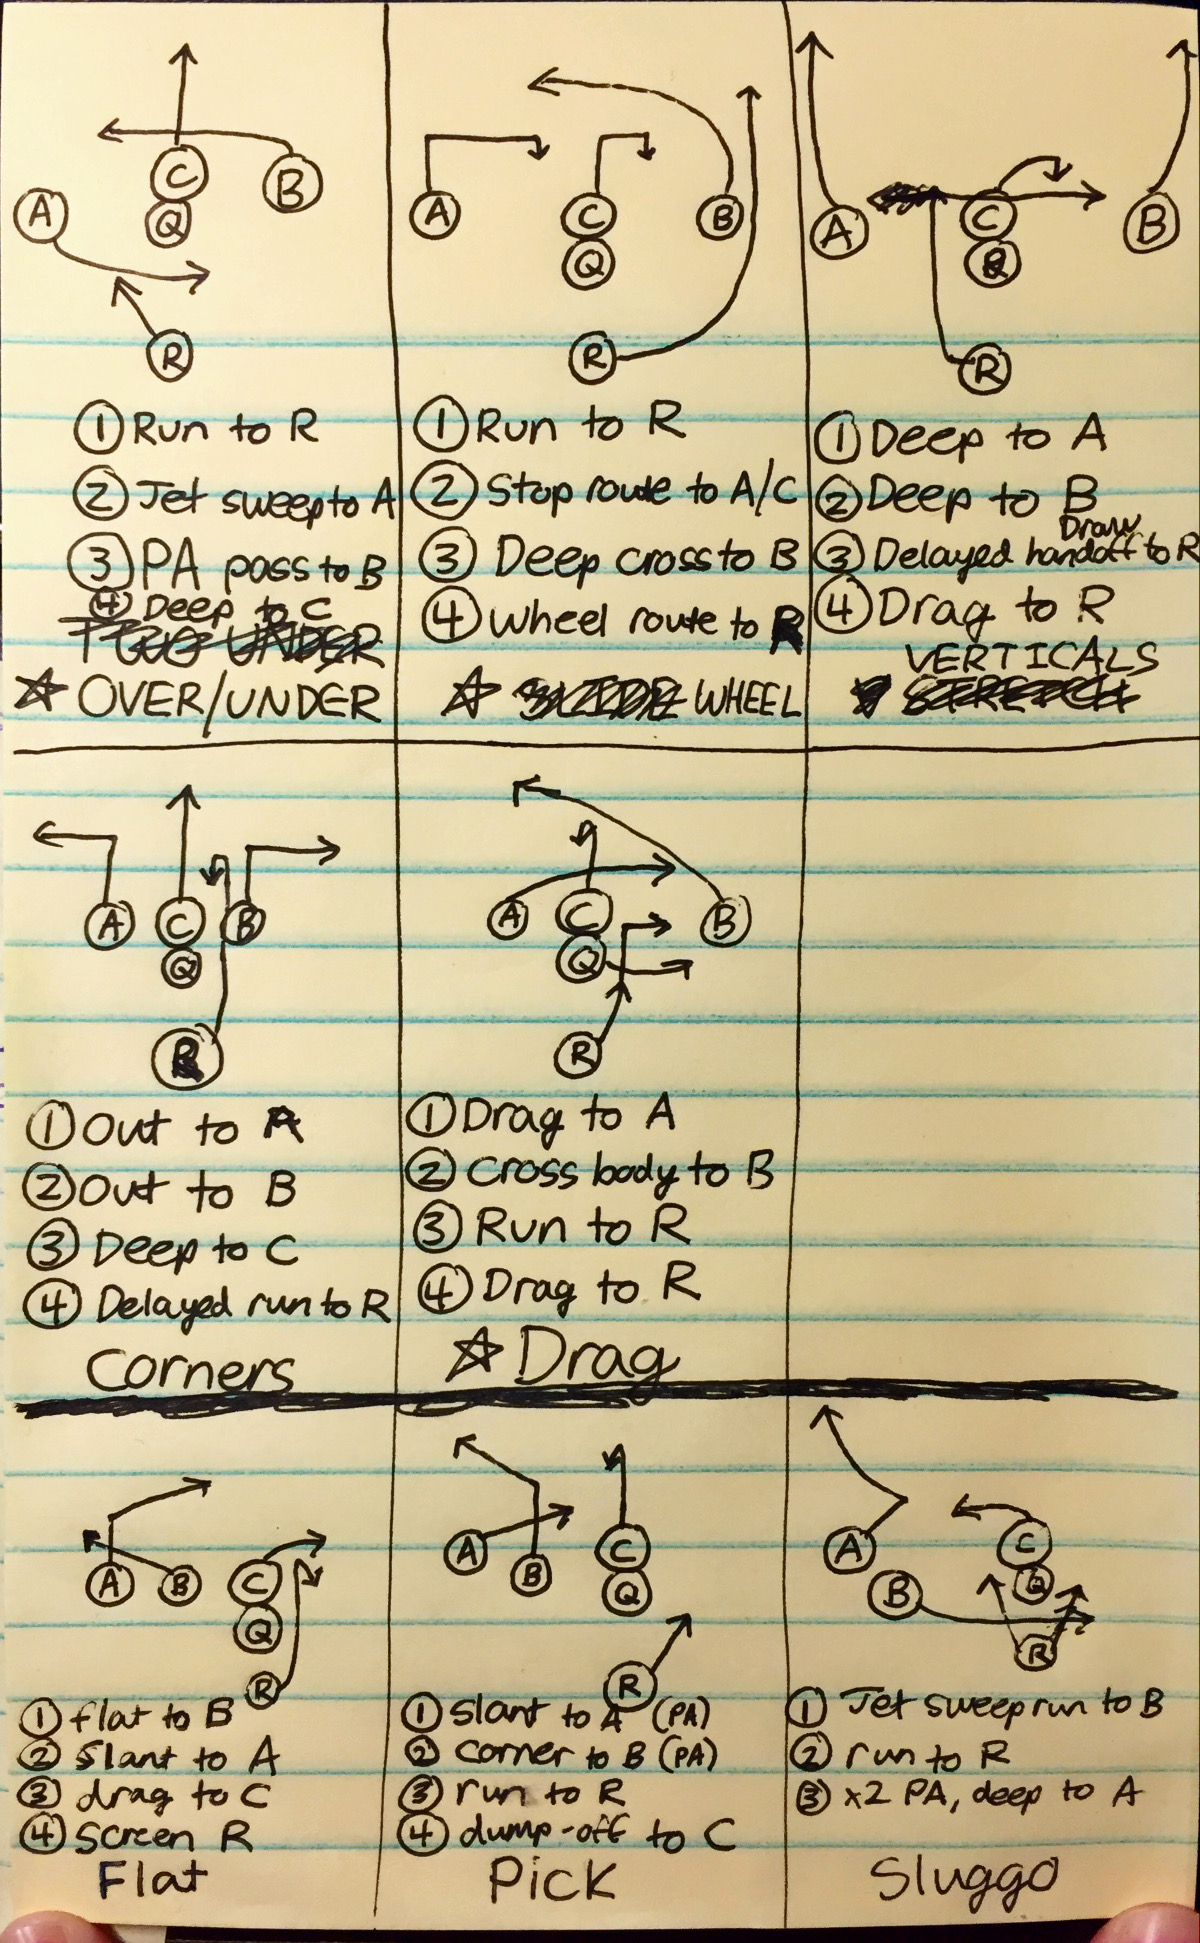 C
B
A
Q
R
① Run to R
② Jet sweep to A
③ PA pass to B
④ Deep to C
OVER/UNDER
A
C
B
Q
R
① Run to R
② Stop route to A/C
③ Deep cross to B
④ Wheel route to R
WHEEL
A
C
B
Q
R
① Deep to A
② Deep to B
Draw
③ Delayed handoff to R
④ Drag to R
VERTICALS
A
C
B
Q
R
① Out to A
② Out to B
③ Deep to C
④ Delayed run to R
Corners
A
C
B
Q
R
① Drag to A
② Cross body to B
③ Run to R
④ Drag to R
Drag
A
B
C
Q
R
① flat to B
② slant to A
③ drag to C
④ screen R
Flat
A
B
C
Q
R
① slant to A (PA)
② corner to B (PA)
③ run to R
④ dump-off to C
Pick
A
C
B
Q
R
① Jet sweep run to B
② run to R
③ x2 PA, deep to A
Sluggo